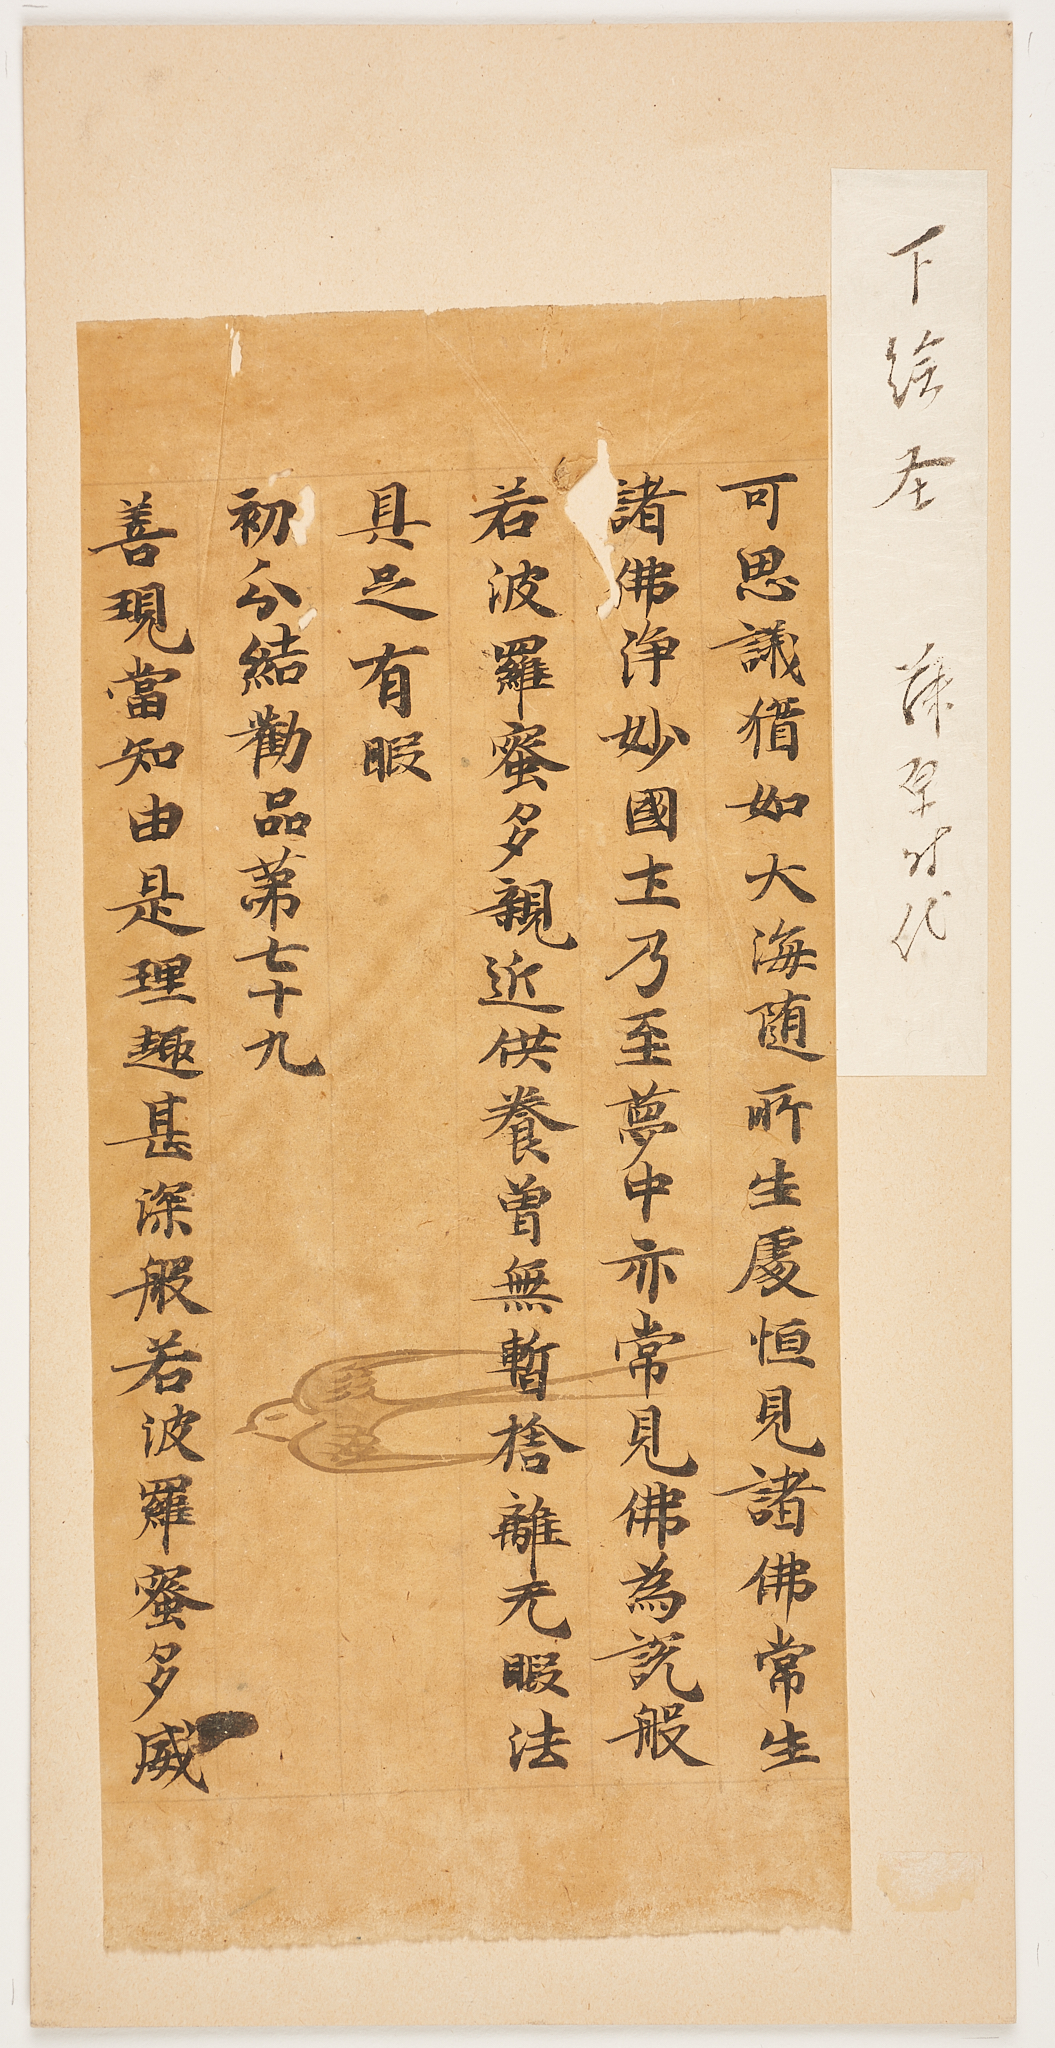 下絵在
可思議猶如大海随所生處恒見諸佛常生
諸佛浄妙國土乃至夢中亦常見佛為説般
若波羅蜜多親近供養曽無暫捨離无暇法
具足有暇
初分結勸品第七十九
善現當知由是理趣甚深般若波羅蜜多威